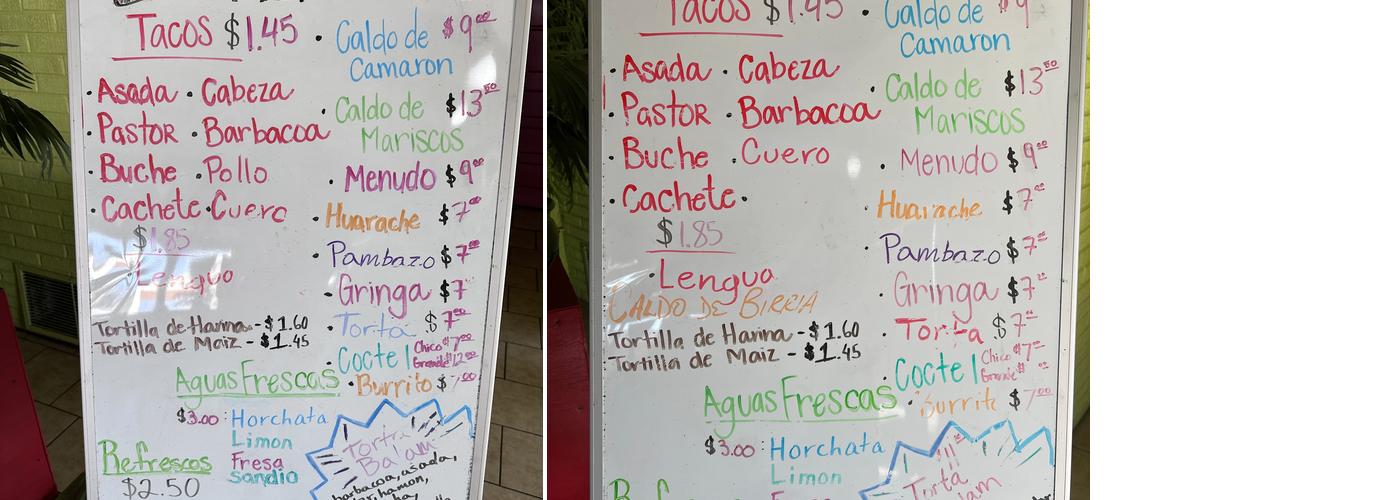 Tacos $1.45
• Caldo de $9.00
Camaron
• Asada • Cabeza
• Caldo de $13.50
Mariscos
• Pastor • Barbacoa
• Buche • Pollo
• Menudo $9.00
• Cachete • Cuero
• Huarache $7.00
$1.85
• Lengua
• Pambazo $7.00
• Gringa $7
• Torta $7.00
Tortilla de Harina - $1.60
Tortilla de Maiz - $1.45
• Coctel Chico $7.00
Grande $12.00
Aguas Frescas
• Burrito $7.00
$3.00 : Horchata
Limon
Fresa
Sandia
Refrescos
$2.50
Torta
Balam
barbacoa, asada,
Tacos $1.45
• Caldo de $9
Camaron
• Asada • Cabeza
• Caldo de $13.50
Mariscos
• Pastor • Barbacoa
• Buche • Cuero
• Menudo $9.00
• Cachete •
Huarache $7.00
$1.85
• Lengua
• Pambazo $7.00
CALDO DE BIRRIA
• Gringa $7.00
Tortilla de Harina - $1.60
Tortilla de Maiz - $1.45
• Torta $7.00
• Coctel Chico $7
Grande $
Aguas Frescas
• Burrito $7.00
$3.00 : Horchata
Limon
Torta